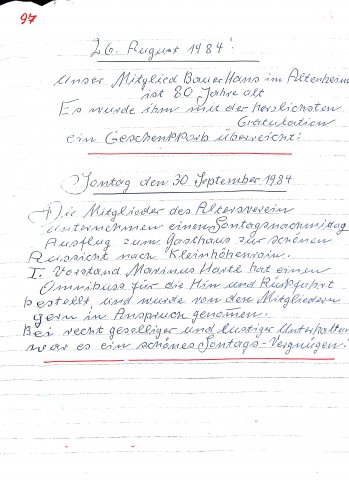 97
26. August 1984:
Unser Mitglied Bauer Hans im Altenheim
ist 80 Jahre alt
Es wurde ihm mit der herzlichsten
Gratulation
ein Geschenkkorb überreicht!
Sontag den 30 September 1984
Die Mitglieder des Altersverein
unternehmen einen Sontagsnachmittag
Ausflug zum Gasthaus zur schönen
Aussicht nach Kleinhöhenrain.
I. Vorstand Marinus Hartl hat einen
Omnibuss für die Hin und Rükfahrt
bestellt, und wurde von den Mitgliedern
gern in Anspruch genomen.
Bei recht geselliger und lustiger Unterhaltun
war es ein schönes Sontags-Vergnügen!